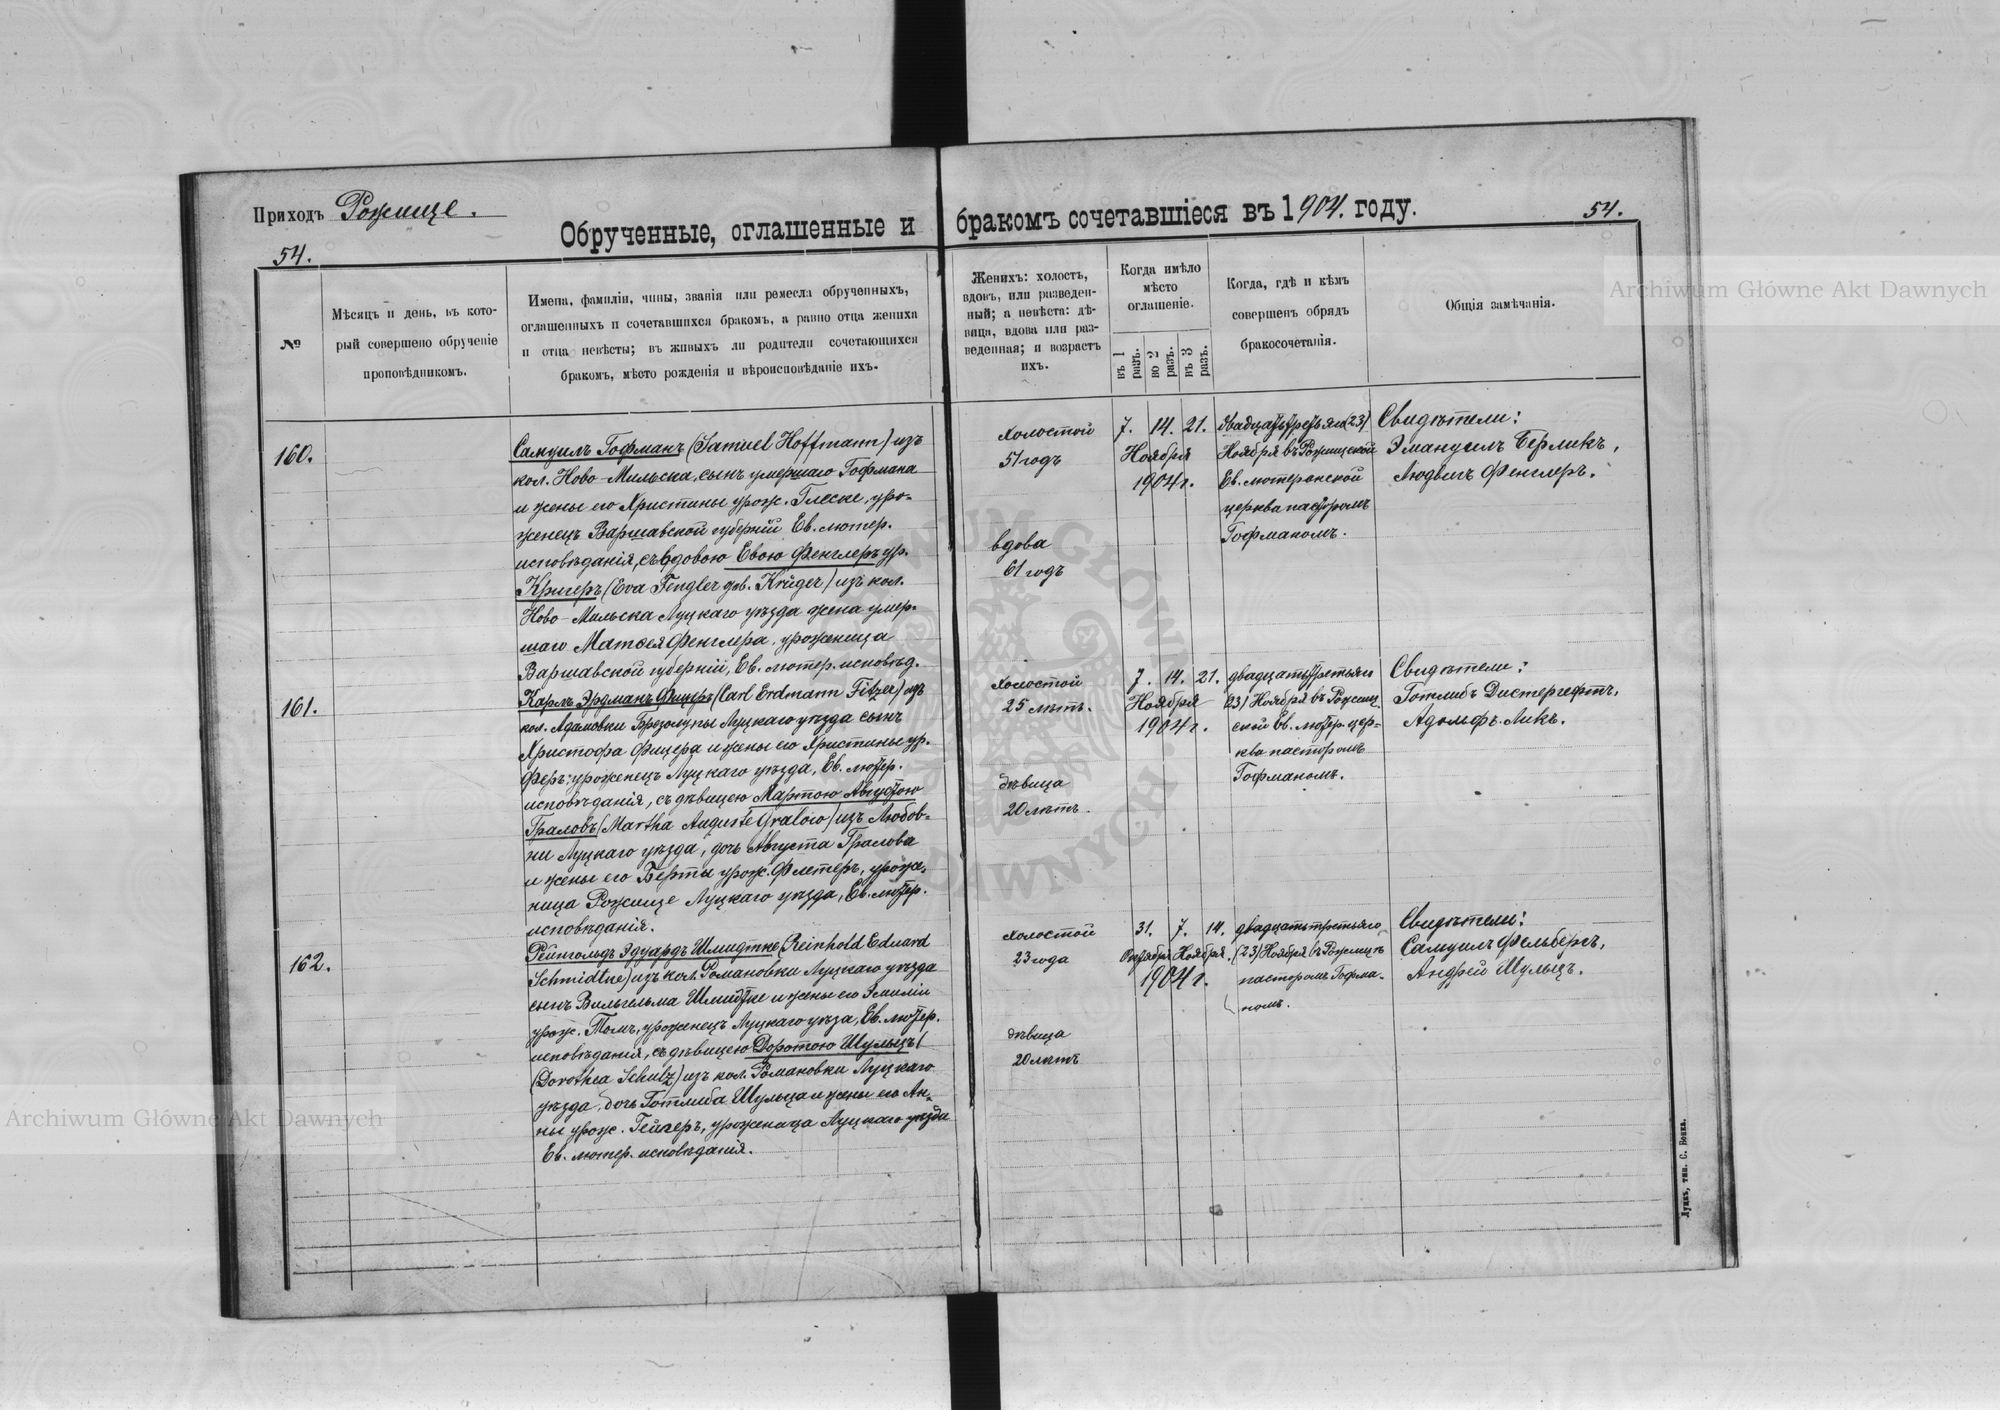 Приходъ Рожище.
54.
Обрученные, оглашенные и бракомъ сочетавшіеся въ 1904. году.
54.
№
Мѣсяцъ и день, въ кото-
рый совершено обрученіе
проповѣдникомъ.
Имена, фамиліи, чины, званія или ремесла обрученныхъ,
оглашенныхъ и сочетавшихся бракомъ, а равно отца жениха
и отца невѣсты; въ живыхъ ли родители сочетающихся
бракомъ, мѣсто рожденія и вѣроисповѣданіе ихъ.
Женихъ: холостъ,
вдовъ, или разведен-
ный; а невѣста: дѣ-
вица, вдова или раз-
веденная; и возрастъ
ихъ.
Когда имѣло
мѣсто
оглашеніе.
въ 1 разъ.
во 2 разъ.
въ 3 разъ.
Когда, гдѣ и кѣмъ
совершенъ обрядъ
бракосочетанія.
Общія замѣчанія.
160.
Самуилъ Гофманъ (Samuel Hoffmann) изъ
кол. Ново-Мильска, сынъ умершаго Гофмана
и жены его Христины урож. Глеске, уро-
женецъ Варшавской губерніи Ев. лютер.
исповѣданія, съ вдовою Евою Фенглеръ ур.
Кригеръ (Eva Fengler geb. Krüger) изъ кол.
Ново-Мильска Луцкаго уѣзда жена умер-
шаго Матвея Фенглера, уроженица
Варшавской губерніи, Ев. лютер. исповѣд.
холостой
51 годъ
вдова
61 годъ
7. 14. 21.
Ноября
1904 г.
двадцатьтретьяго (23)
Ноября въ Рожищской
Ев. лютеранской
церкви пасторомъ
Гофманомъ.
Свидѣтели:
Эмануилъ Берликъ,
Людвигъ Фенглеръ.
161.
Карлъ Эрдманъ Фицеръ (Carl Erdmann Fitzer) изъ
кол. Адамовки Брезолупы Луцкаго уѣзда сынъ
Христофа Фицера и жены его Христины ур.
Феръ, уроженецъ Луцкаго уѣзда, Ев. лютер.
исповѣданія, съ дѣвицею Мартою Августою
Граловъ (Martha Auguste Gralow) изъ Любов-
ни Луцкаго уѣзда, дочь Августа Гралова
и жены его Берты урож. Флетеръ, уроже-
ница Рожище Луцкаго уѣзда, Ев. лютер.
исповѣданія.
холостой
25 лѣтъ.
дѣвица
20 лѣтъ.
7. 14. 21.
Ноября
1904 г.
двадцатьтретьяго
23) Ноября въ Рожищ-
ской Ев. лютер. цер-
кви пасторомъ
Гофманомъ.
Свидѣтели:
Готлибъ Дистергефтъ,
Адольфъ Ликъ.
162.
Рейнгольдъ Эдуардъ Шмидтке (Reinhold Eduard
Schmidtke) изъ кол. Романовки Луцкаго уѣзда
сынъ Вильгельма Шмидтке и жены его Эмиліи
урож. Томъ, уроженецъ Луцкаго уѣзда, Ев. лютер.
исповѣданія, съ дѣвицею Доротою Шульцъ (
(Dorothea Schulz) изъ кол. Романовки Луцкаго
уѣзда, дочь Готлиба Шульца и жены его Ан-
ны урож. Гейгеръ, уроженица Луцкаго уѣзда
Ев. лютер. исповѣданія.
холостой
23 года
дѣвица
20 лѣтъ
31. 7. 14.
Октября Ноября.
1904 г.
двадцатьтретьяго
(23) Ноября въ Рожищѣ
пасторомъ Гофма-
номъ.
Свидѣтели:
Самуилъ Фельбергъ,
Андрей Шульцъ.
Луцкъ, тип. С. Бонка.
Archiwum Główne Akt Dawnych
Archiwum Główne Akt Dawnych